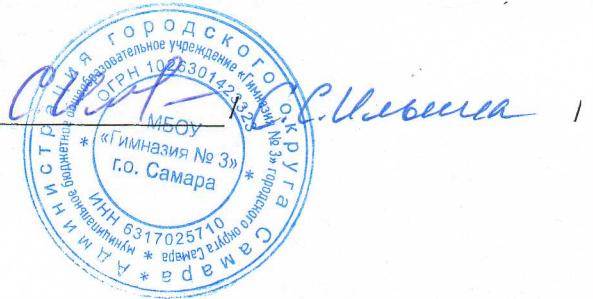 / С.С. Ильина /
* Администрация городского округа Самара *
муниципальное бюджетное общеобразовательное учреждение «Гимназия № 3» городского округа Самара *
* ОГРН 1026301423323 *
ИНН 6317025710
МБОУ
«Гимназия № 3»
г.о. Самара